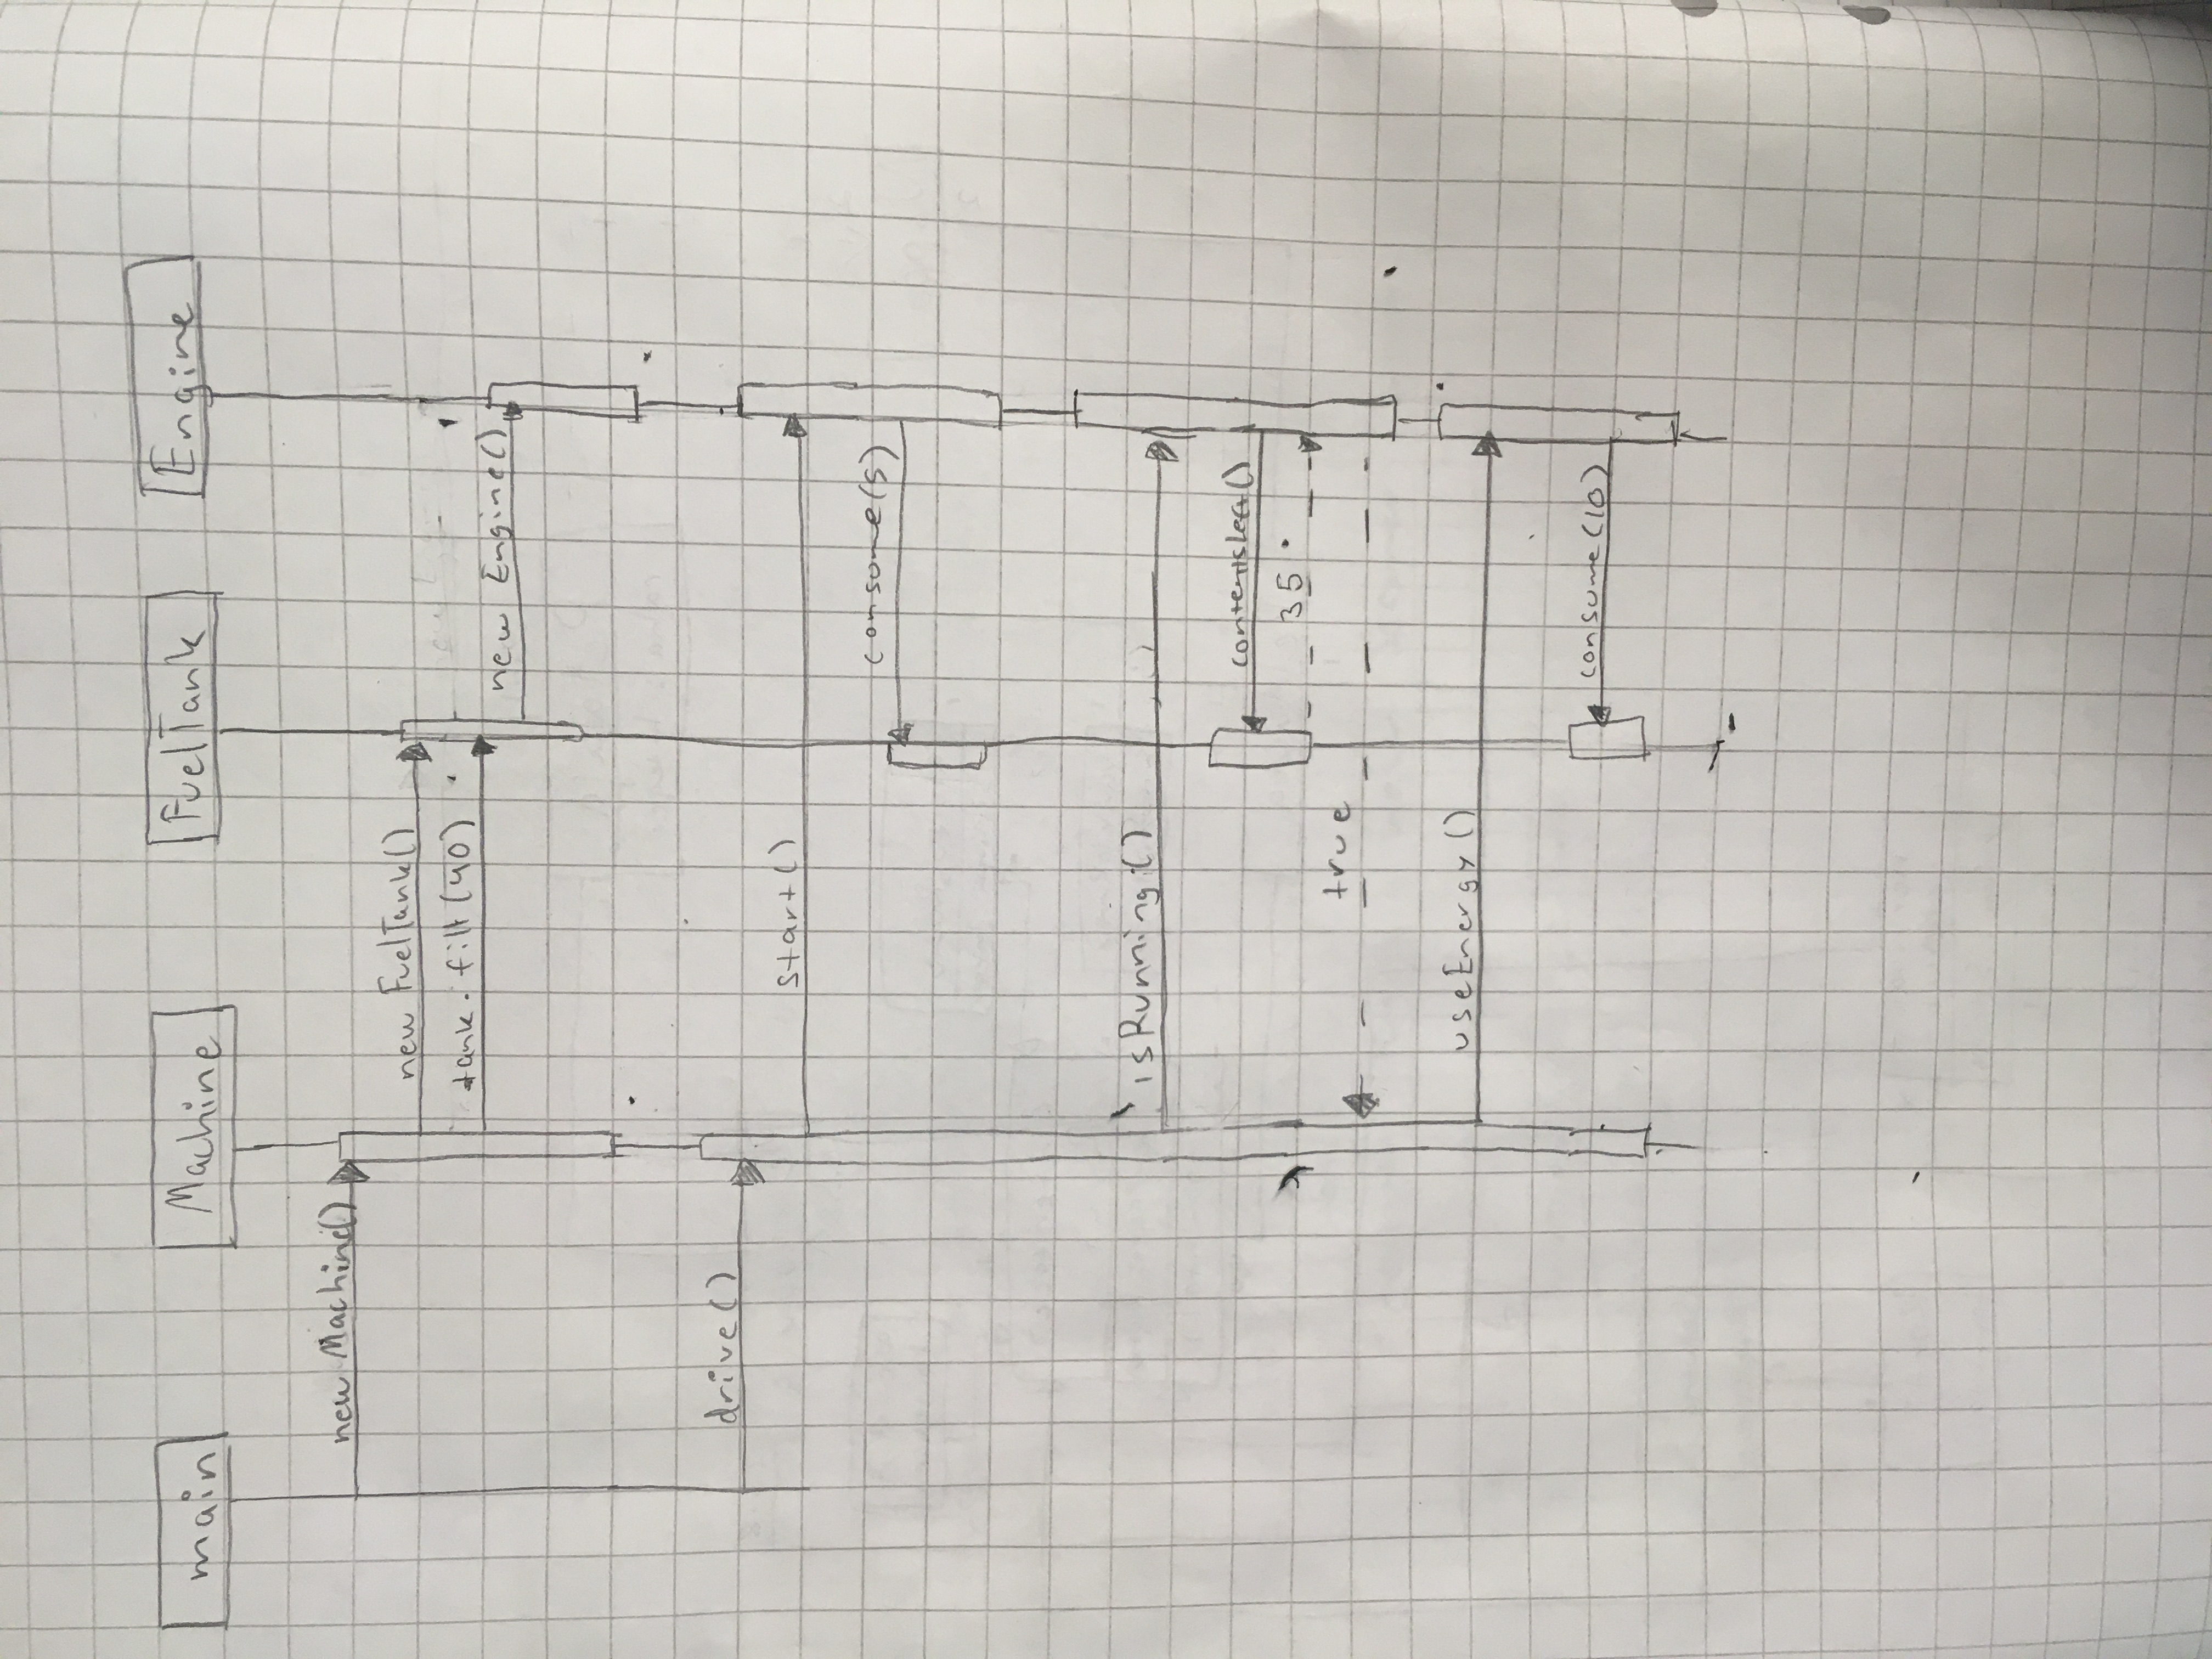 main
Machine
FuelTank
Engine
new Machine()
new FuelTank()
tank.fill(40)
new Engine()
drive()
start()
consume(5)
isRunning()
contentsLeft()
35
true
useEnergy()
consume(10)